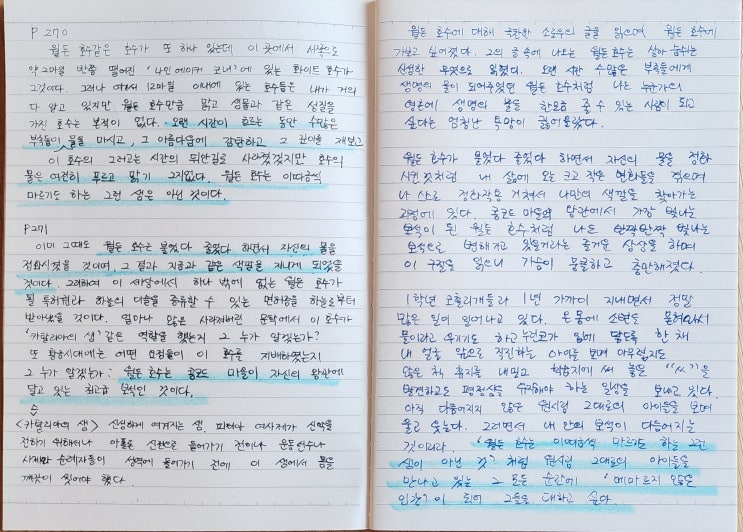 P 270
월든 호수같은 호수가 또 하나 있는데 이 곳에서 서쪽으로
약 2마일 반쯤 떨어진 '나인 에이커 코너'에 있는 화이트 호수가
그것이다. 그러나 여기서 12마일 이내에 있는 호수들은 내가 거의
다 알고 있지만 월든 호수만큼 맑고 샘물과 같은 성질을
가진 호수는 본적이 없다. 오랜 시간이 흐르는 동안 수많은
부족들이 물을 마시고, 그 아름다움에 감탄하고 그 깊이를 재보고
이 호수의 그러고는 시간의 뒤안길로 사라졌겠지만 호수의
물은 여전히 푸르고 맑기 그지없다. 월든 호수는 이따금씩
마르기도 하는 그런 샘은 아닌 것이다.
P 271
이미 그때도 월든 호수는 불었다 줄었다 하면서 자신의 물을
정화시켰을 것이며, 그 결과 지금과 같은 색깔을 지니게 되었을
것이다. 그리하여 이 세상에서 하나 밖에 없는 월든 호수가
될 특허권과 하늘의 이슬을 증류할 수 있는 면허증을 하늘로부터
받아냈을 것이다. 얼마나 많은 사라져버린 문학에서 이 호수가
'카탈리아의 샘' 같은 역할을 했는지 그 누가 알겠는가?
또 황금시대에는 어떤 요정들이 이 호수를 지배하였는지
그 누가 알겠는가? 월든 호수는 콩코드 마을이 자신의 왕관에
달고 있는 최고급 보석인 것이다.
<카탈리아의 샘> 신성하게 여겨지는 샘. 피티아 여사제가 신탁을
전하기 위해서나 아폴로 신전으로 들어가기 전이나 운동선수나
사제와 순례자들이 성역에 들어가기 전에 이 샘에서 몸을
깨끗이 씻어야 했다.
월든 호수에 대해 극찬한 소로우의 글을 읽으며 월든 호수에
가보고 싶어졌다. 그의 글 속에 나오는 월든 호수는 살아 숨쉬는
신성한 무엇으로 읽혔다. 오랜 시간 수많은 부족들에게
생명의 물이 되어주었던 월든 호수처럼 나도 누군가의
영혼에 생명의 물을 한모금 줄 수 있는 사람이 되고
싶다는 엄청난 욕망이 끓어올랐다.
월든 호수가 불었다 줄었다 하면서 자신의 물을 정화
시킨 것처럼 내 삶에 오는 크고 작은 변화들을 겪으며
나 스스로 정화작용 거쳐서 나만의 색깔을 찾아가는
과정에 있다. 콩코드 마을의 왕관에서 가장 빛나는
보석이 된 월든 호수처럼 나도 반짝반짝 빛나는
보석으로 변해가고 있을거라는 즐거운 상상을 하며
이 구절을 읽으니 가슴이 뭉클하고 충만해졌다.
1학년 꼬물이들과 1년 가까이 지내면서 정말
많은 일이 일어나고 있다. 온 몸에 소변을 묻혀와서
물이라고 우기기도 하고 누런코가 입에 닿도록 한 채
내 얼굴 앞으로 직진하는 아이를 보며 아무렇지도
않은 척 휴지를 내밀고 학습지에 써 놓은 "ㅆ"을
발견하고도 평정심을 유지해야 하는 일상을 보내고 있다.
아직 다듬어지지 않은 원석 그대로의 아이들을 보며
울고 웃는다. 그러면서 내 안의 보석이 다듬어지는
것이리라. '월든 호수는 이따금씩 마르기도 하는 그런
샘이 아닌 것' 처럼 원석 그대로의 아이들을
만나고 있는 그 모든 순간에 '메마르지 않은
인간'이 되어 그들을 대하고 싶다.